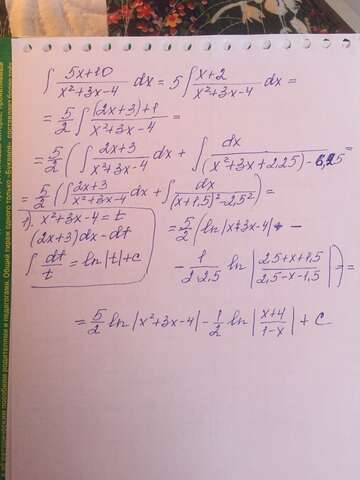 ∫ (5x+10)/(x²+3x-4) dx = 5∫ (x+2)/(x²+3x-4) dx =
= 5/2 ∫ ((2x+3)+1)/(x²+3x-4) =
= 5/2 (∫ (2x+3)/(x²+3x-4) dx + ∫ dx/((x²+3x+2,25)-6,25) =
= 5/2 (∫ (2x+3)/(x²+3x-4) dx + ∫ dx/((x+1,5)²-2,5²) ) =
1). x²+3x-4=t
(2x+3)dx-dt
∫ dt/t = ln|t|+c
= 5/2 (ln|x²+3x-4| -
- 1/(2·2,5) ln |(2,5+x+1,5)/(2,5-x-1,5)| ) =
= 5/2 ln|x²+3x-4| - 1/2 ln |(x+4)/(1-x)| + C